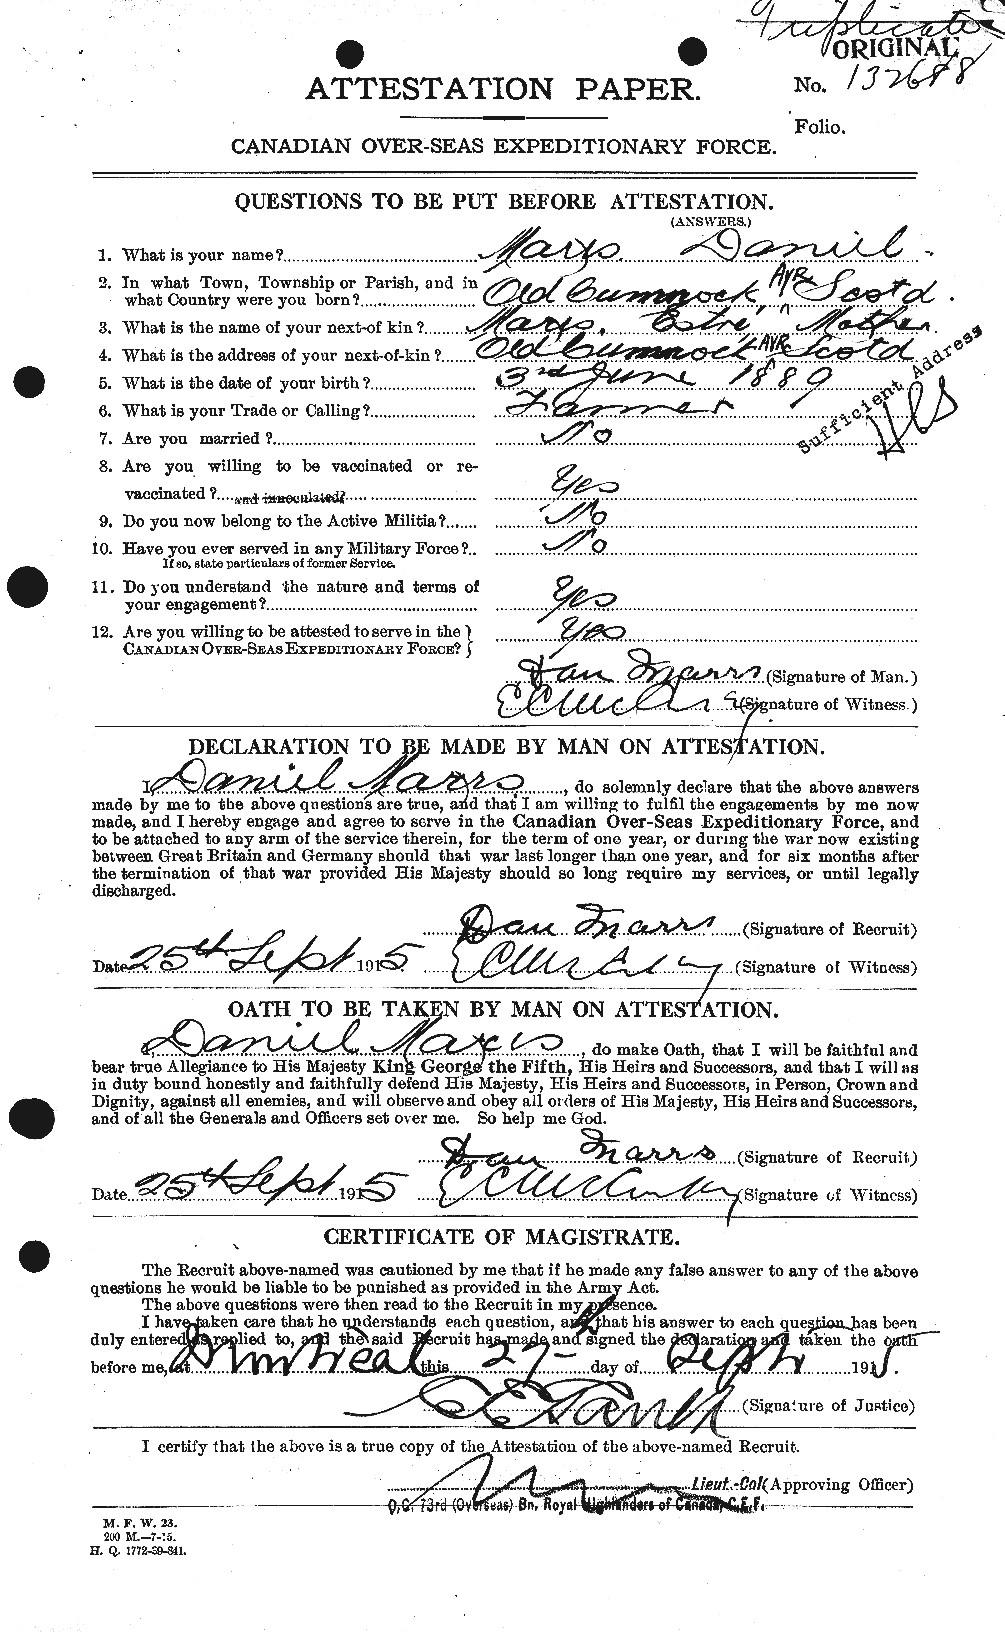 Triplicate
ORIGINAL
ATTESTATION PAPER.
No. 132688
Folio.
CANADIAN OVER-SEAS EXPEDITIONARY FORCE.
QUESTIONS TO BE PUT BEFORE ATTESTATION.
(ANSWERS.)
1. What is your name? Marrs Daniel
2. In what Town, Township or Parish, and in
what Country were you born? Old Cumnock, AYR Scotd.
3. What is the name of your next-of kin? Marrs, Mother
4. What is the address of your next-of-kin? Old Cumnock AYR Scotd
Sufficient Address
5. What is the date of your birth? 3rd June 1889
6. What is your Trade or Calling? Farmer
7. Are you married? No
8. Are you willing to be vaccinated or re-
vaccinated? and innoculated? Yes
9. Do you now belong to the Active Militia? No
10. Have you ever served in any Military Force? No
If so, state particulars of former Service.
11. Do you understand the nature and terms of
your engagement? Yes
12. Are you willing to be attested to serve in the
CANADIAN OVER-SEAS EXPEDITIONARY FORCE? Yes
Dan Marrs (Signature of Man.)
(Signature of Witness.)
DECLARATION TO BE MADE BY MAN ON ATTESTATION.
I, Daniel Marrs, do solemnly declare that the above answers
made by me to the above questions are true, and that I am willing to fulfil the engagements by me now
made, and I hereby engage and agree to serve in the Canadian Over-Seas Expeditionary Force, and
to be attached to any arm of the service therein, for the term of one year, or during the war now existing
between Great Britain and Germany should that war last longer than one year, and for six months after
the termination of that war provided His Majesty should so long require my services, or until legally
discharged.
Dan Marrs (Signature of Recruit)
Date 25th Sept 1915. (Signature of Witness)
OATH TO BE TAKEN BY MAN ON ATTESTATION.
I, Daniel Marrs, do make Oath, that I will be faithful and
bear true Allegiance to His Majesty King George the Fifth, His Heirs and Successors, and that I will as
in duty bound honestly and faithfully defend His Majesty, His Heirs and Successors, in Person, Crown and
Dignity, against all enemies, and will observe and obey all orders of His Majesty, His Heirs and Successors,
and of all the Generals and Officers set over me. So help me God.
Dan Marrs (Signature of Recruit)
Date 25th Sept 1915 (Signature of Witness)
CERTIFICATE OF MAGISTRATE.
The Recruit above-named was cautioned by me that if he made any false answer to any of the above
questions he would be liable to be punished as provided in the Army Act.
The above questions were then read to the Recruit in my presence.
I have taken care that he understands each question, and that his answer to each question has been
duly entered as replied to, and the said Recruit has made and signed the declaration and taken the oath
before me, at Montreal this 27 day of Septr 1915.
(Signature of Justice)
I certify that the above is a true copy of the Attestation of the above-named Recruit.
Lieut.-Col (Approving Officer)
O.C. 73rd (Overseas) Bn, Royal Highlanders of Canada, C.E.F.
M. F. W. 23.
200 M.—7-15.
H. Q. 1772-39-841.